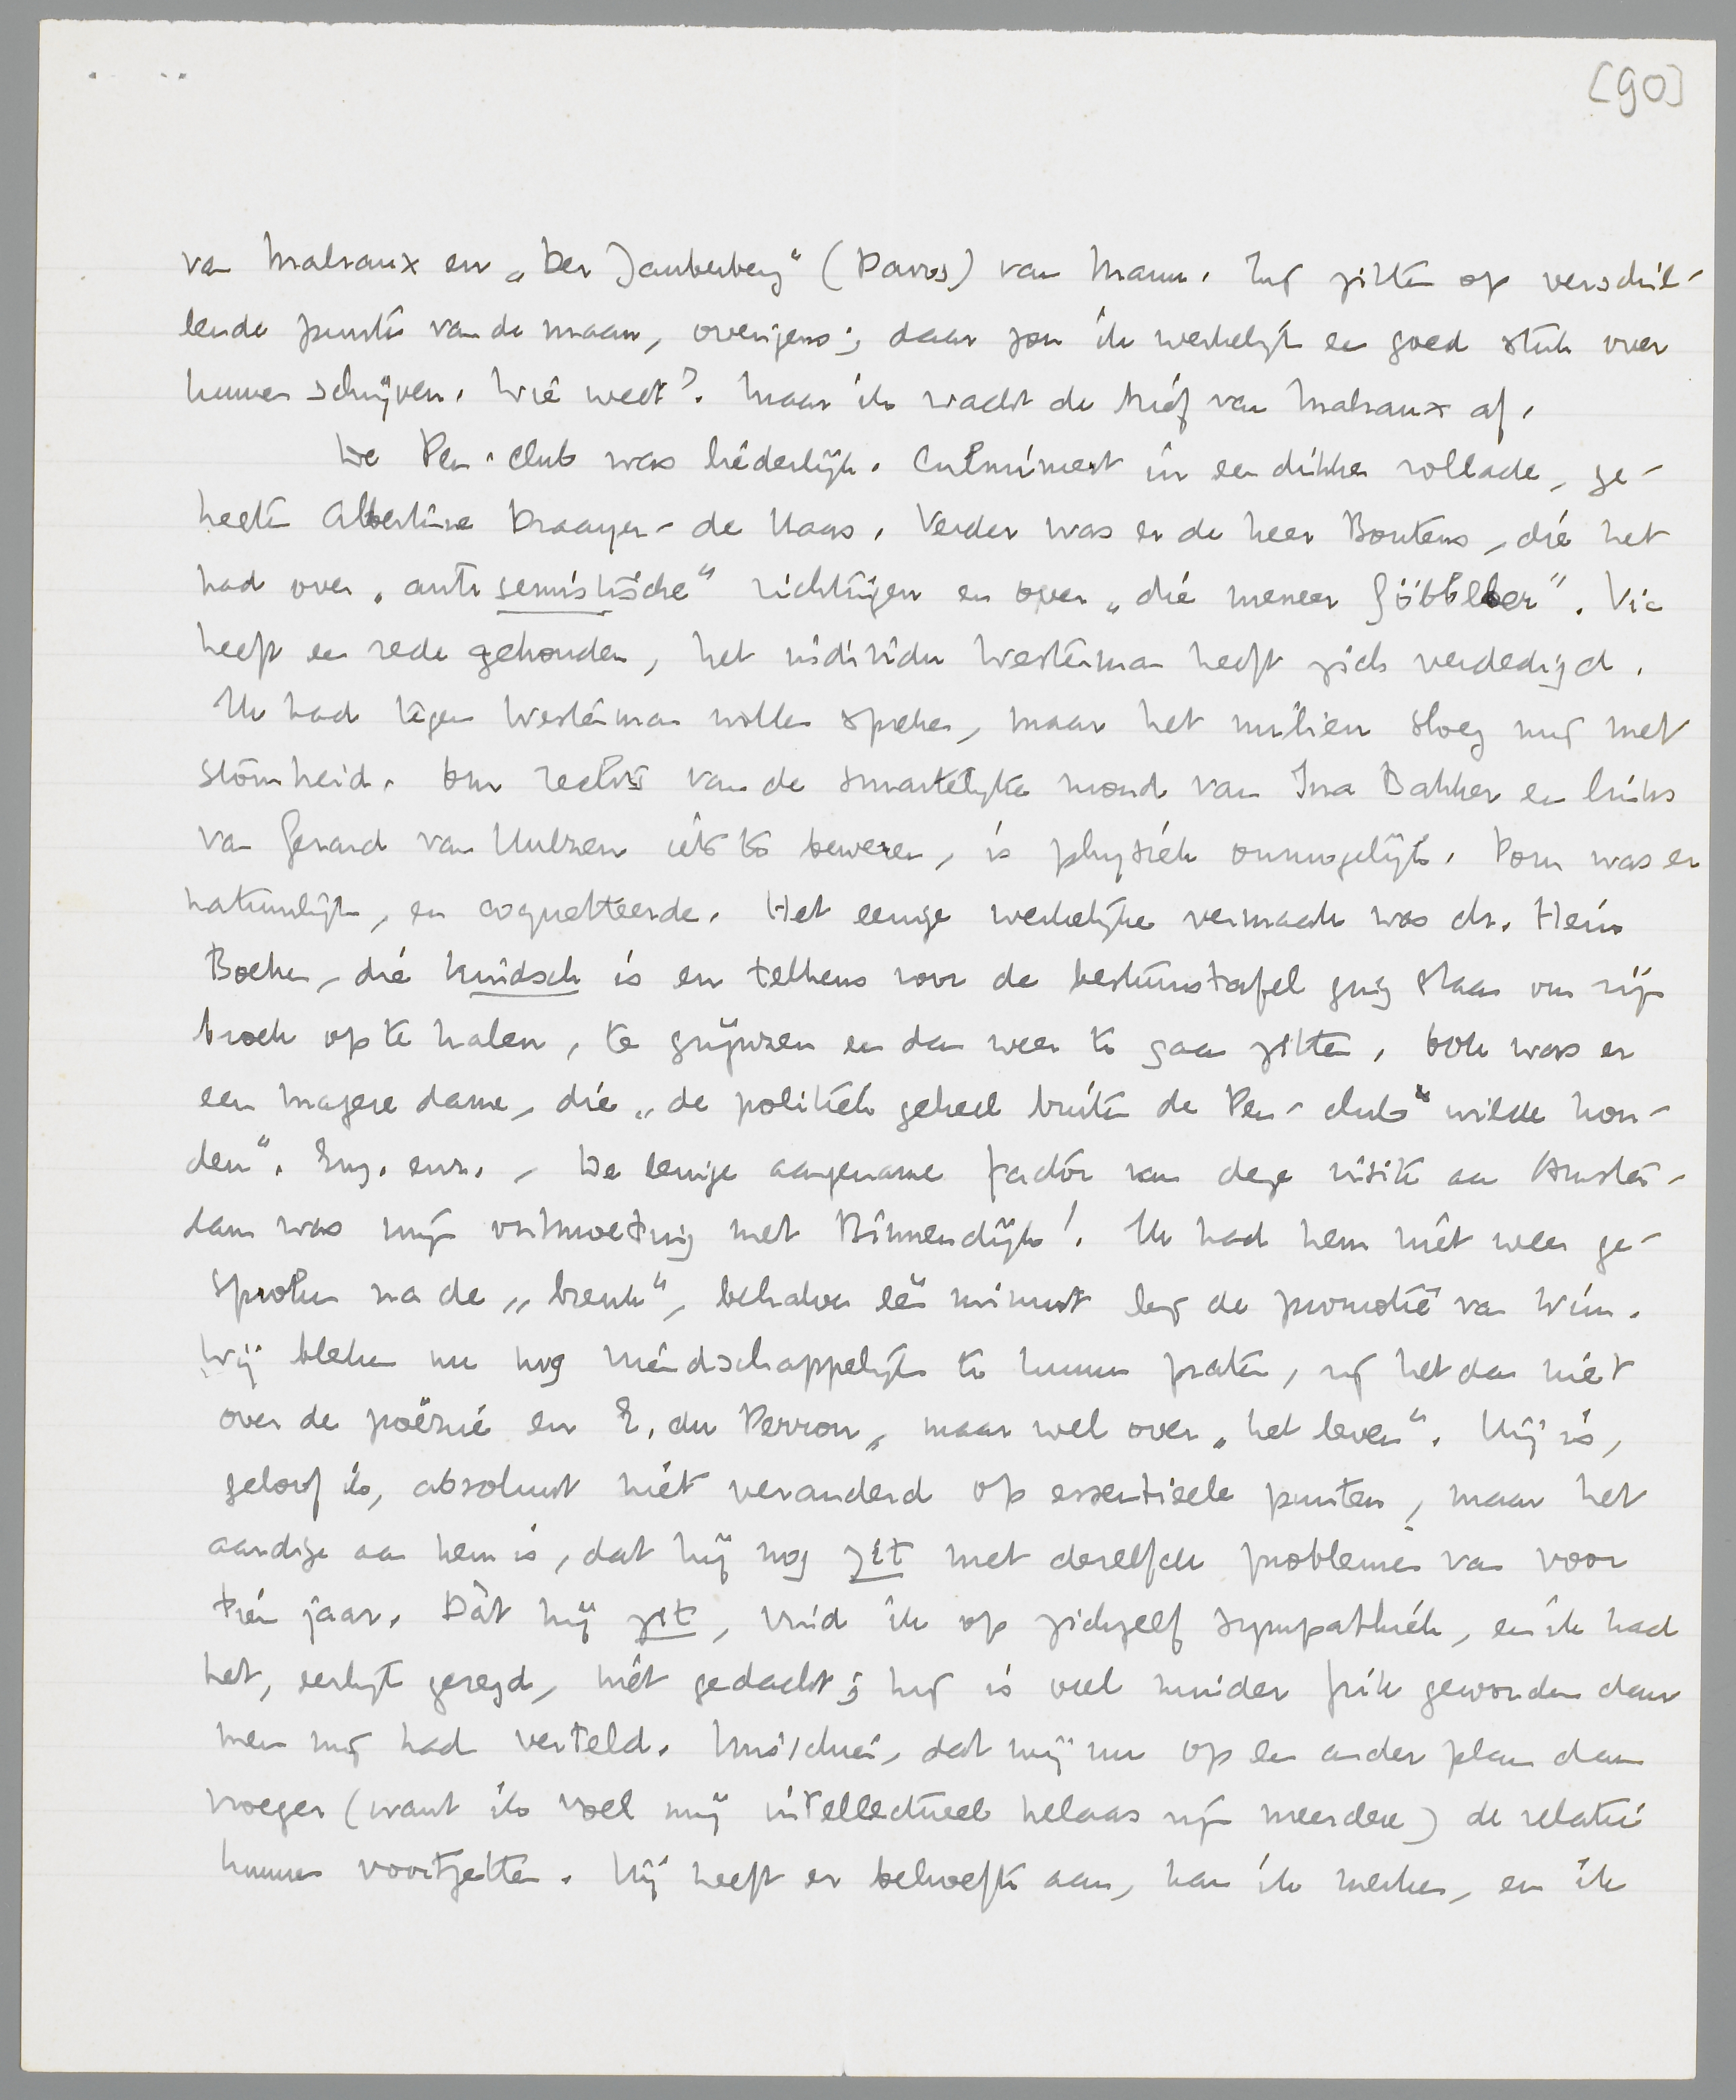 [90]
van Malraux en „Der Zauberberg" (Davos) van Mann. Zij zitten op verschil-
lende punten van de maan, overigens; daar zou ik werkelijk een goed stuk over
kunnen schrijven. Wie weet? Maar ik wacht de brief van Malraux af.
De Pen-club was liederlijk. Culmineert in een dikke rollade, ge-
heeten Albertine Draayer-de Haas. Verder was er de heer Boutens, die het
had over „anti semistische" richtingen en over „die meneer Göbbelber". Vic
heeft een rede gehouden, het individu Westerman heeft zich verdedigd.
Ik had tegen Westerman willen spreken, maar het milieu sloeg mij met
stomheid. Om rechts van de smartelijke mond van Ina Bakker en links
van Gerard van Hulzen iets te beweren, is physiek onmogelijk. Dom was er
natuurlijk, en coquetteerde. Het eenige werkelijke vermaak was dr. Hein
Boeken, die kindsch is en telkens voor de bestuurstafel ging staan om zijn
broek op te halen, te grijnzen en dan weer te gaan zitten. Ook was er
een magere dame, die „de politiek geheel buiten de Pen-club" wilde hou-
den". Enz. enz. – De eenige aangename factor van deze visite aan Amster-
dam was mijn ontmoeting met Binnendijk! Ik had hem niet weer ge-
sproken na de „breuk", behalve één minuut bij de promotie van Wim.
Wij bleken nu nog vriendschappelijk te kunnen praten, zij het dan niet
over de poëzie en E. du Perron, maar wel over „het leven". Hij is,
geloof ik, absoluut niet veranderd op essentieele punten, maar het
aardige aan hem is, dat hij nog zit met dezelfde problemen van voor
tien jaar. Dàt hij zit, vind ik op zichzelf sympathiek, en ik had
het, eerlijk gezegd, niet gedacht; hij is veel minder frik geworden dan
men mij had verteld. Misschien, dat wij nu op een ander plan dan
vroeger (want ik voel mij intellectueel helaas zijn meerdere) de relatie
kunnen voortzetten. Hij heeft er behoefte aan, kan ik merken, en ik